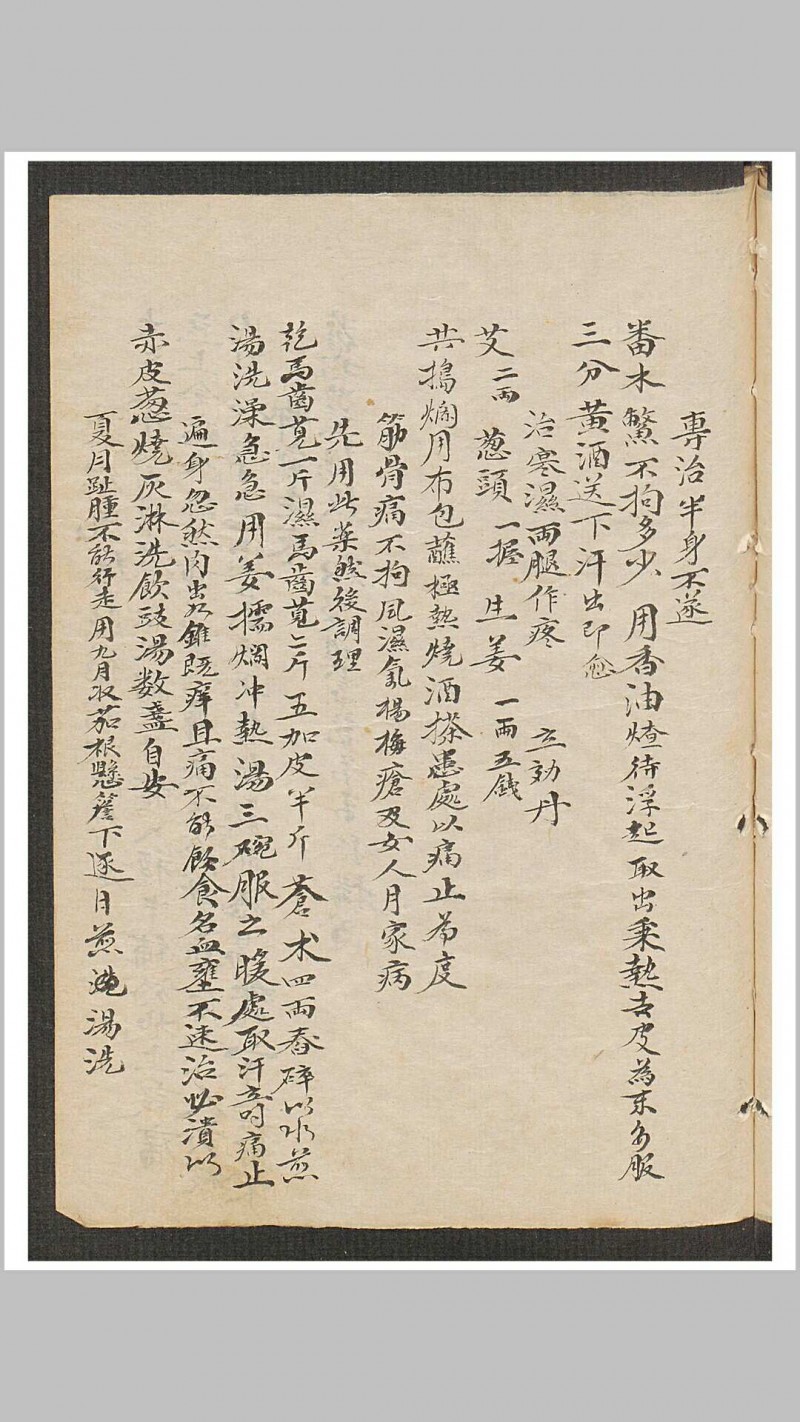 專治半身不遂
番木鱉不拘多少 用香油煠待浮起取出乗熱去皮為末多服
三分黄酒送下汗出即愈
治寒濕両腿作疼 立効丹
艾二両 葱頭一握 生姜一両五銭
共搗爛用布包蘸極熱燒酒搽患處以痛止為度
筋骨痛不拘風濕氣楊梅瘡及女人月家病
先用此薬然後調理
乾馬齒莧一斤濕馬齒莧二斤五加皮半斤蒼术四両舂碎以水煎
湯洗澡急急用姜擂爛冲熱湯三碗服之暖處取汗立時痛止
遍身忽然肉出如錐既痒且痛不能飲食名血壅不速治必潰以
赤皮葱燒灰淋洗飲豉湯数盞自安
夏月趾腫不能行走用九月収茄根懸簷下逐日煎湯洗